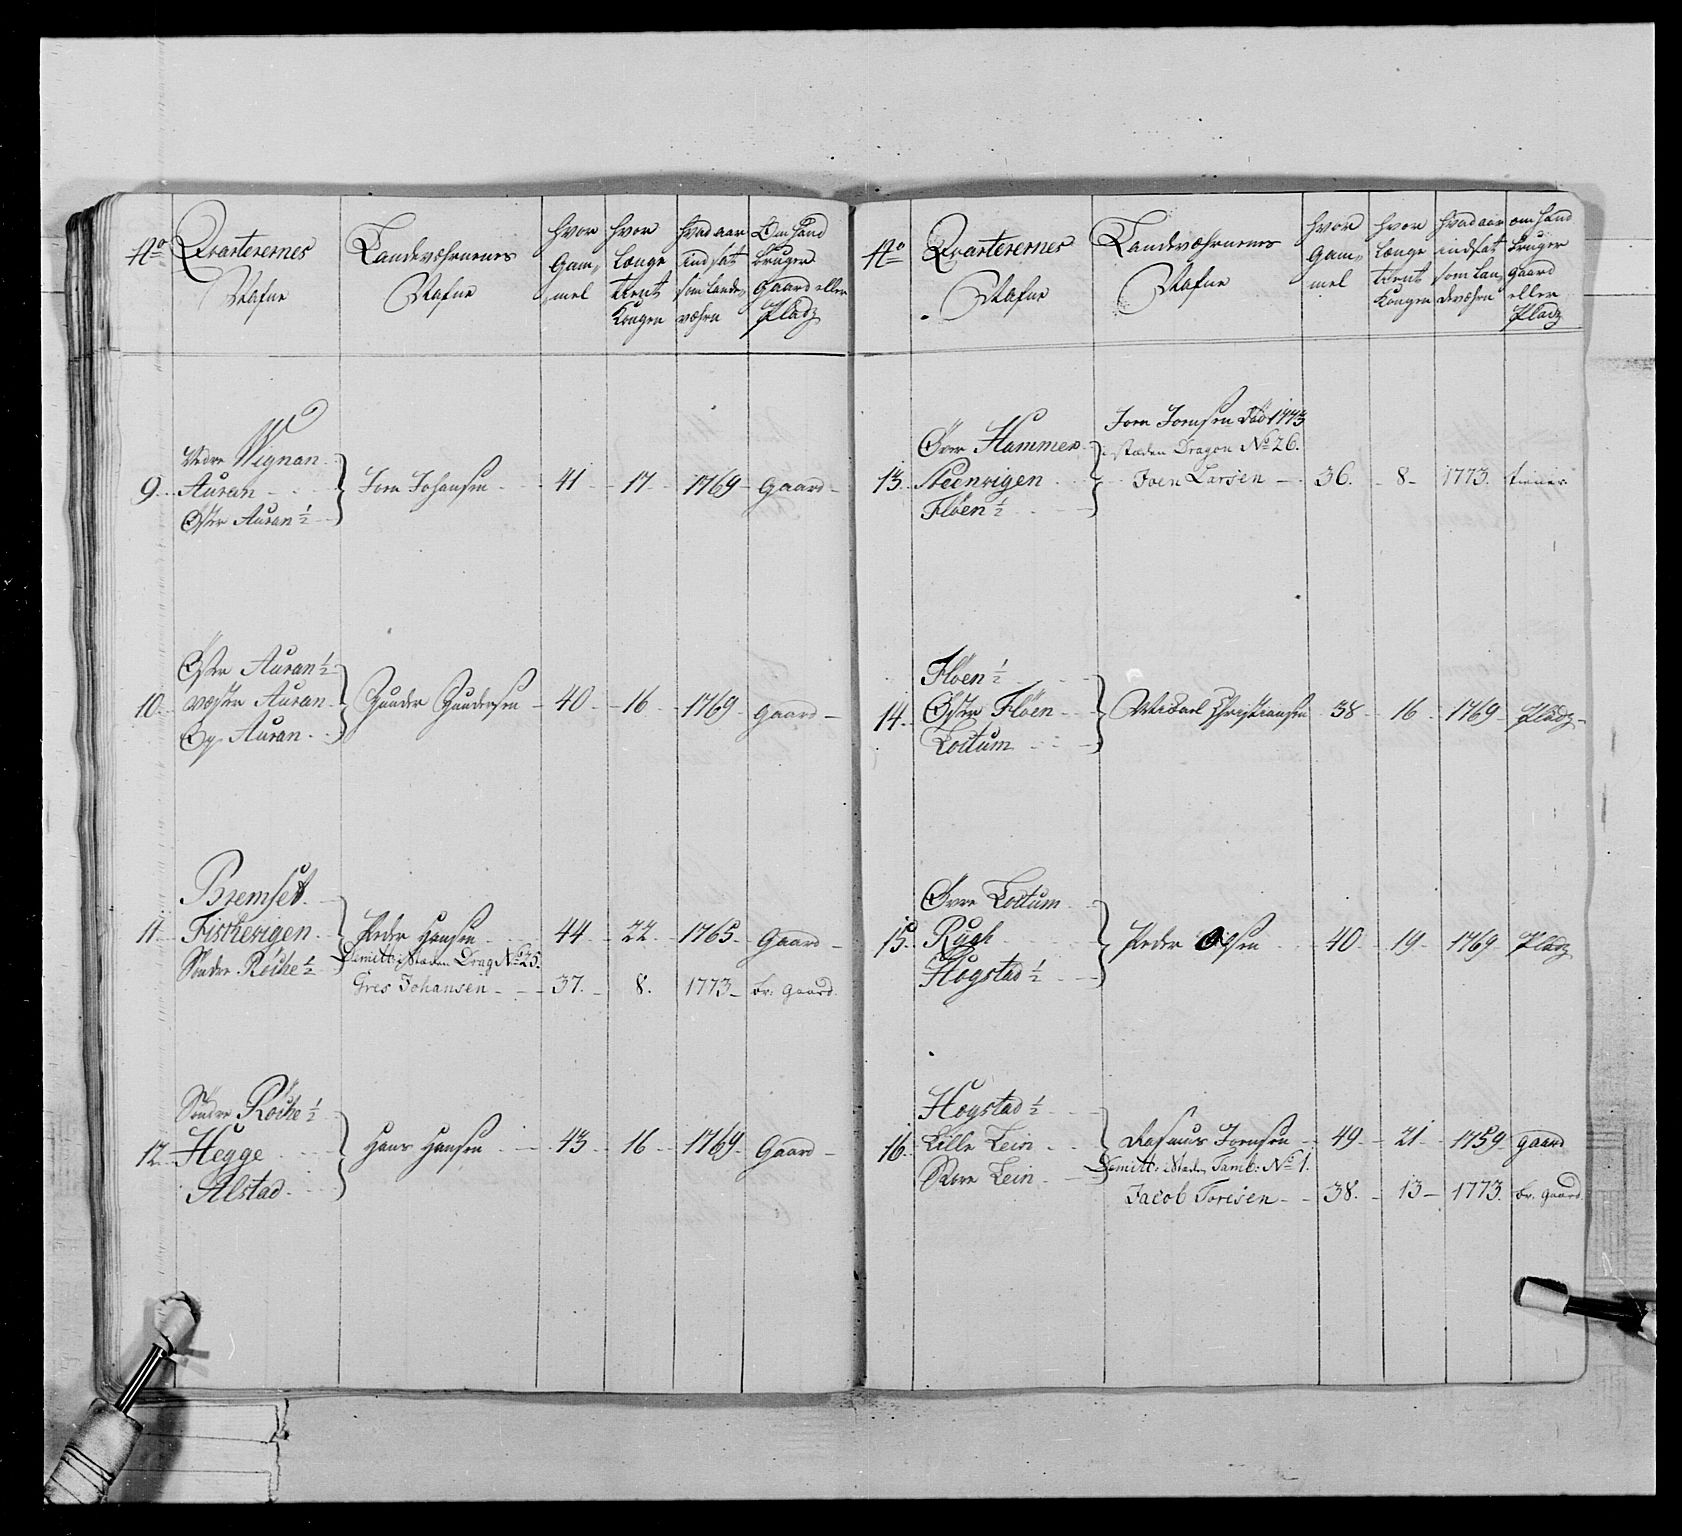 No
Qvarterernes
Nafne
Landeværnenes
Nafne
hvor
Gam-
mel
hvor
længe
tient
Kongen
hvad aar
indsat
som lande-
værn
Om hand
bruger
Gaard eller
Pladz
9. Nedre Wignan
Auran
Øster Auran ½
Joen Johansen 41 17 1769 Gaard
10. Øster Auran ½
vester Auran
Op Auran
Gunder Gundersen 40 16 1769 Gaard
11. Bremset
Fischevigen
Søndre Röche ½
Peder Hansen 44 22 1765 Gaard
Dimitt: i Staden Drag No 25.
Gres Johansen 37. 8. 1773 br. Gaard.
12. Søndre Röche ½
Hegge
Alstad
Hans Hansen 43 16 1769 Gaard
No
Qvarterernes
Nafne
Landeværnenes
Nafne
hvor
Gam-
mel
hvor
længe
tient
Kongen
hvad aar
indsat
som lan-
deværn
om hand
bruger
gaard
eller
Pladz
13. Øvre Hammer
Steenvigen
Flöen ½
Joen Joensen Död 1773
i staden Dragon No 26.
Joen Larsen 36. 8 1773. tiener
14. Flöen ½
Øster Flöen
Loctum
Michael Christiansen 38 16 1769 Pladz
15. Øvre Loctum
Rygh
Hogstad ½
Peder Olsen 40 19 1769 Pladz
16. Hogstad ½
Lille Lein
Store Lein
Rasmus Joensen 49 21 1759 gaard
Dimitt: i Staden Tamb: No 1.
Jacob Toresen 38. 13 1773. br. gaard.